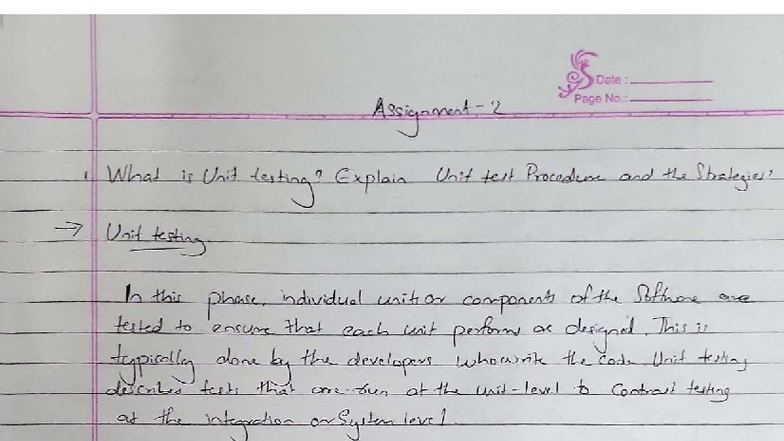 Date :
Page No. :
Assignment - 2
1. What is Unit testing? Explain Unit test Procedure and the Strategies?
→ Unit testing.
In this phase, individual unit or components of the Software are
tested to ensure that each unit perform as designed. This is
typically done by the developers who write the code. Unit testing
describes tests that are run at the unit-level to Contrast testing
at the integration or System level.